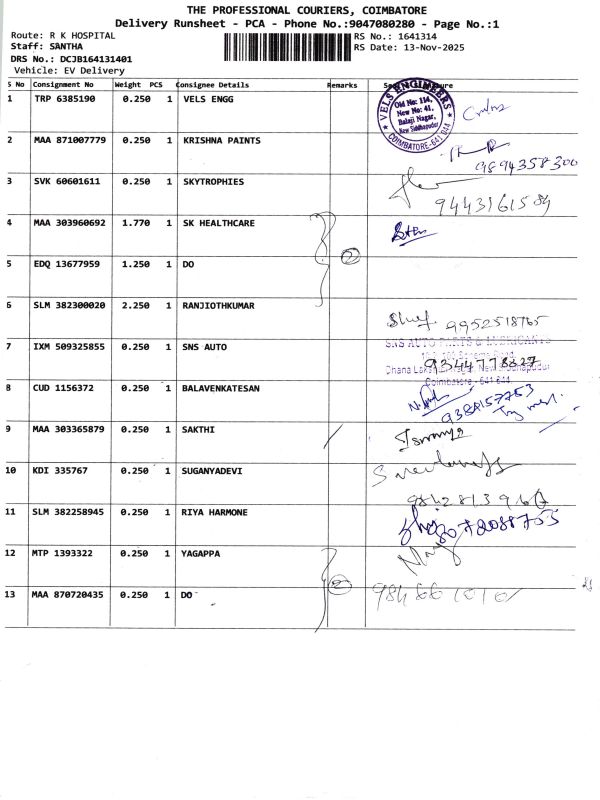 THE PROFESSIONAL COURIERS, COIMBATORE
Delivery Runsheet - PCA - Phone No.:9047080280 - Page No.:1
Route: R K HOSPITAL
RS No.: 1641314
Staff: SANTHA
RS Date: 13-Nov-2025
DRS No.: DCJB164131401
Vehicle: EV Delivery
S No Consignment No Weight PCS Consignee Details Remarks
1 TRP 6385190 0.250 1 VELS ENGG
VELS ENGINEERS
Old No: 114,
New No: 41,
Balaji Nagar,
New Siddhapudur
COIMBATORE-641 044
2 MAA 871007779 0.250 1 KRISHNA PAINTS
9894358300
3 SVK 60601611 0.250 1 SKYTROPHIES
9443161584
4 MAA 303960692 1.770 1 SK HEALTHCARE
2
5 EDQ 13677959 1.250 1 DO
6 SLM 382300020 2.250 1 RANJIOTHKUMAR
9952518765
7 IXM 509325855 0.250 1 SNS AUTO
SNS AUTO PARTS & LUBRICANTS
9344778827
Coimbatore - 641 044.
8 CUD 1156372 0.250 1 BALAVENKATESAN
9 MAA 303365879 0.250 1 SAKTHI
10 KDI 335767 0.250 1 SUGANYADEVI
11 SLM 382258945 0.250 1 RIYA HARMONE
12 MTP 1393322 0.250 1 YAGAPPA
13 MAA 870720435 0.250 1 DO